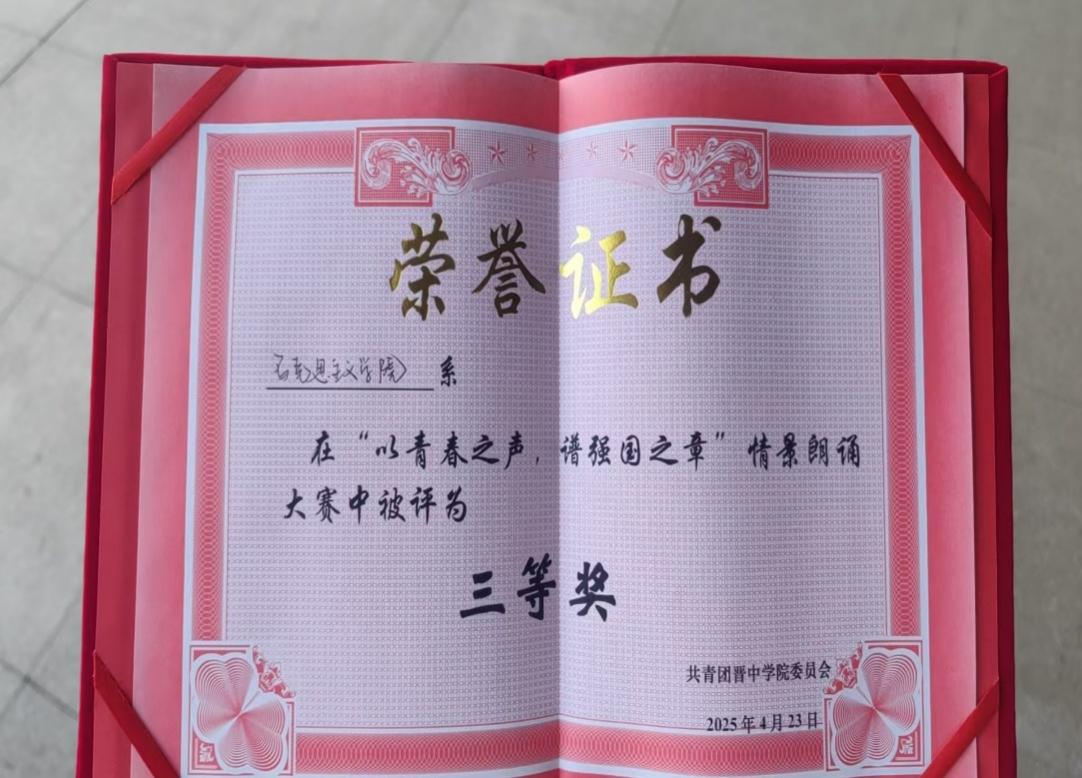 荣誉证书
马克思主义学院系
在“以青春之声，谱强国之章”情景朗诵
大赛中被评为
三等奖
共青团晋中学院委员会
2025年4月23日